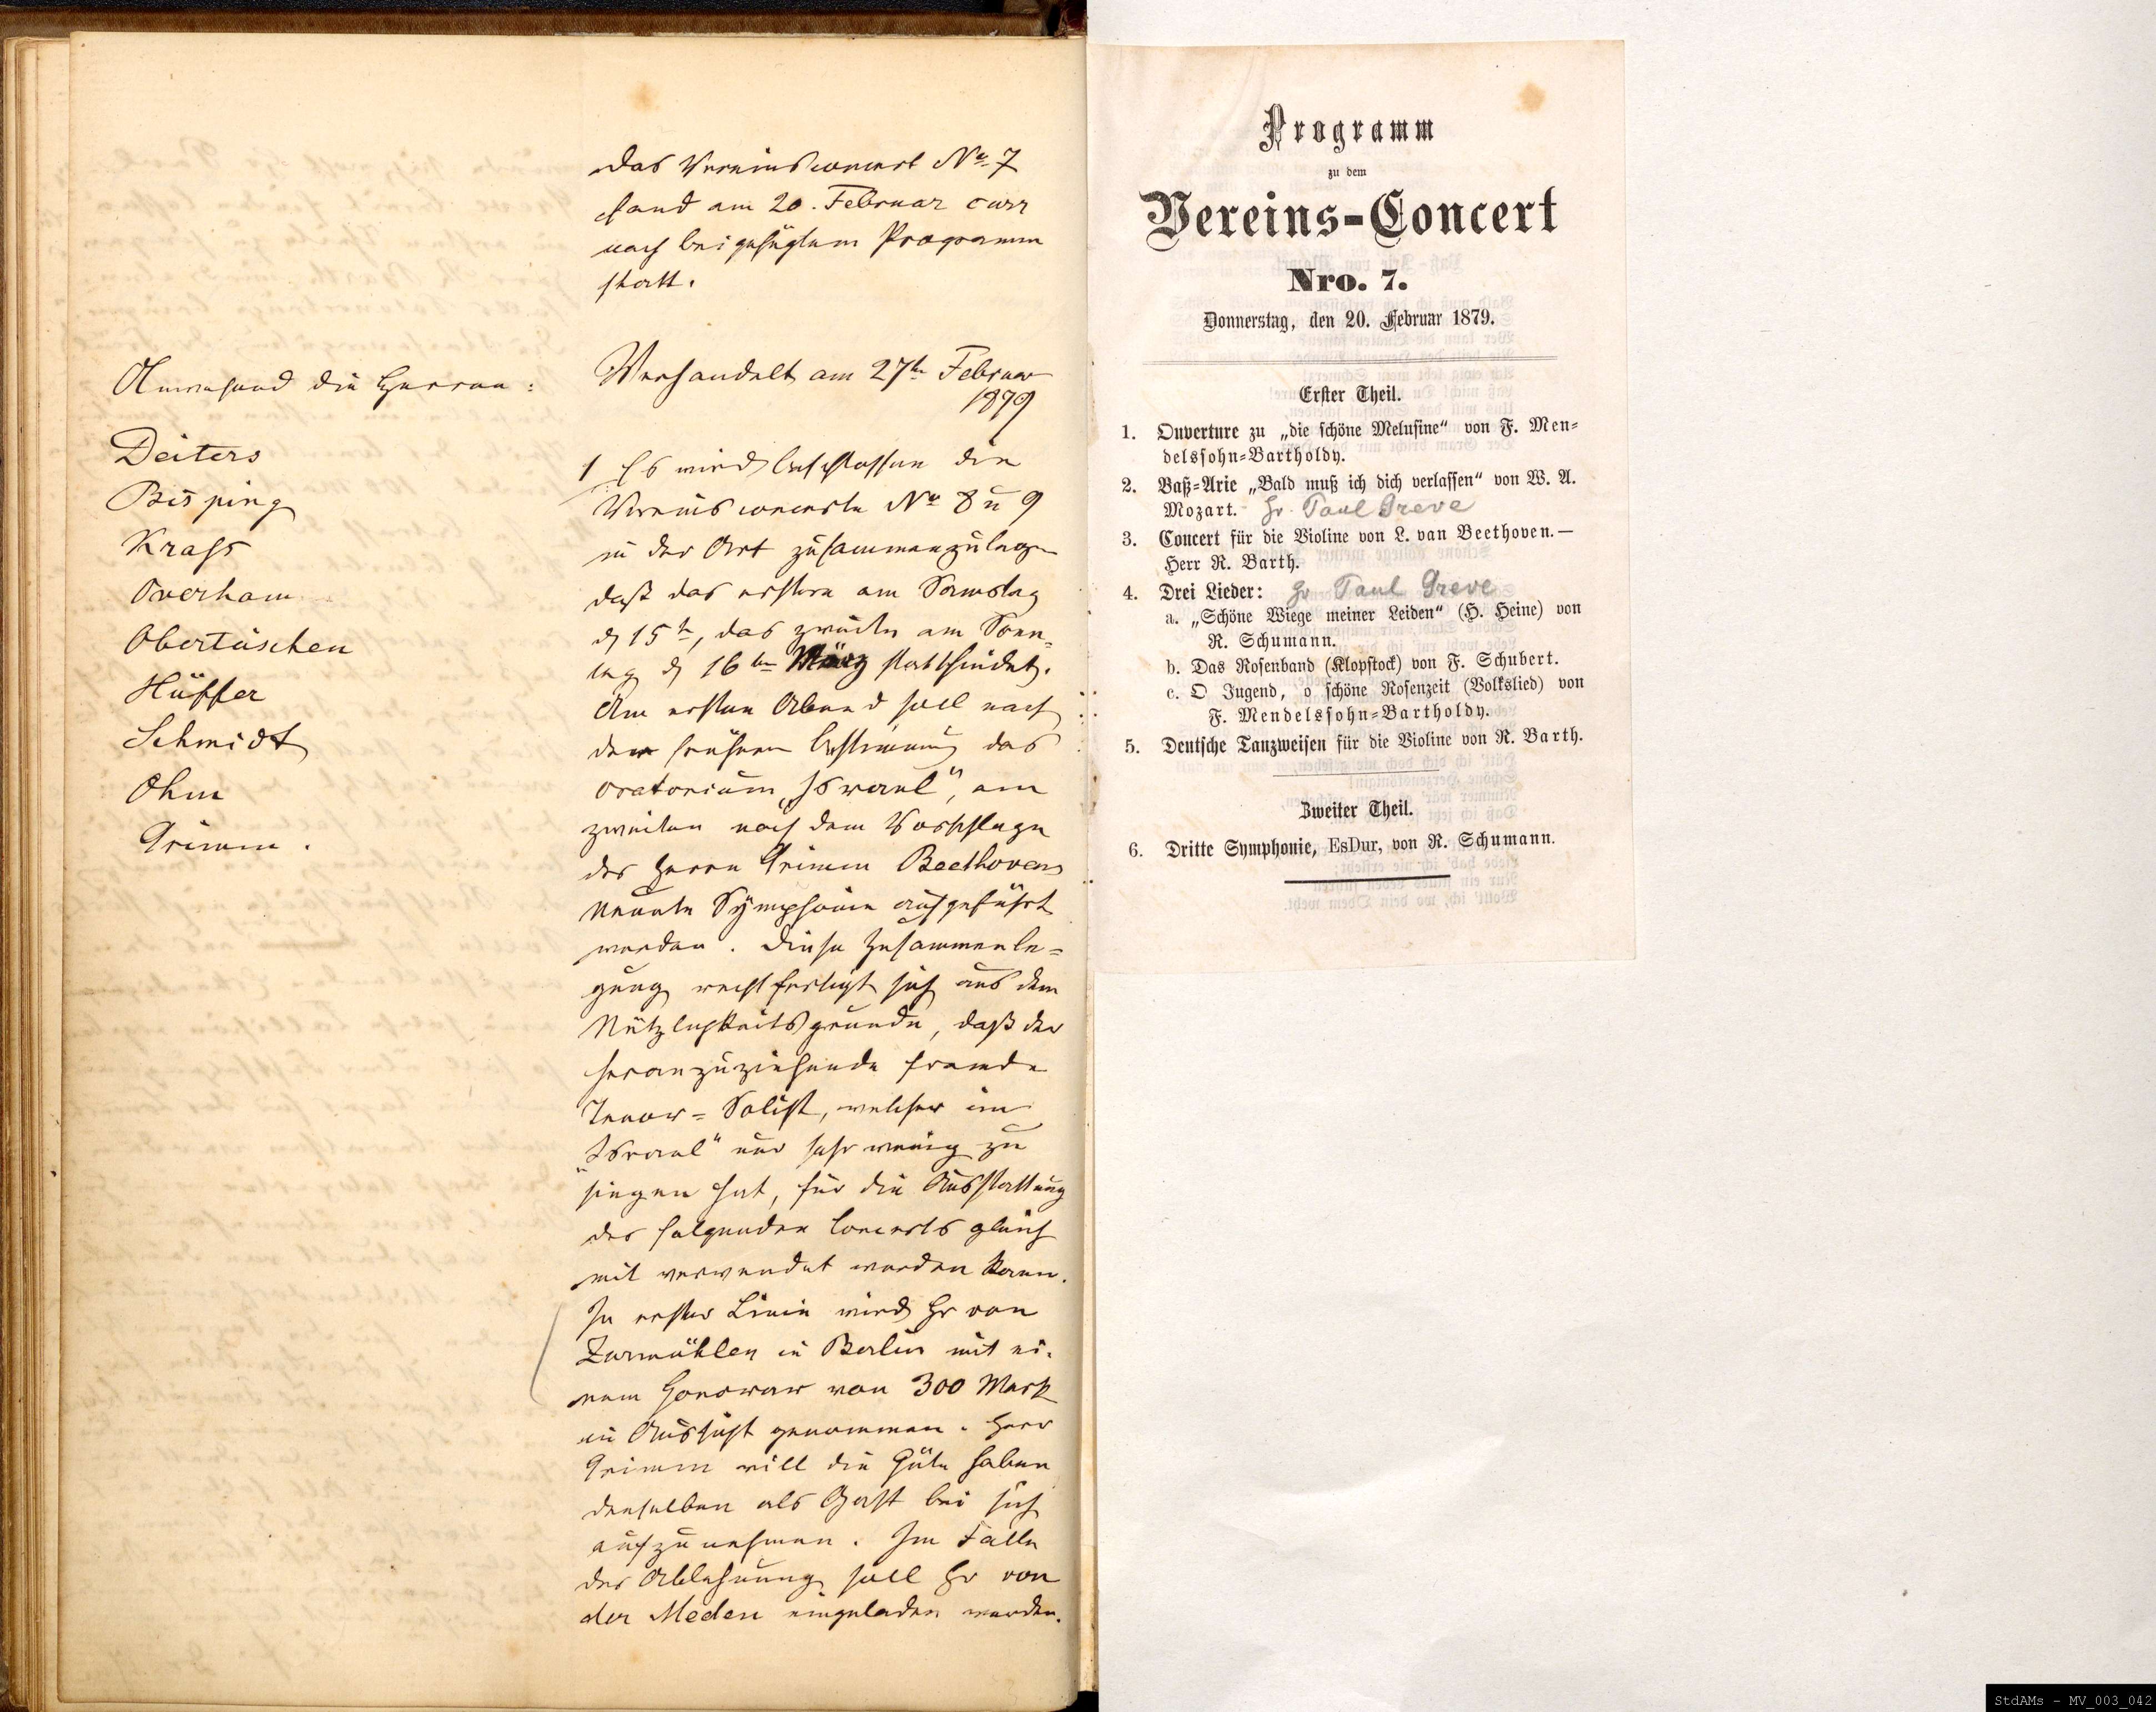 Das Vereinsconcert No. 7
fand am 20. Februar curr
nach beigefügtem Programm
statt.
Anwesend die Herren:
Deiters
Bisping
Krass
Overham
Obertüschen
Hüffer
Schmidt
Ohm
Grimm.
Verhandelt am 27ten Februar
1879
1 Es wird beschlossen die
Vereinsconcerte No 8 u 9
in der Art zusammenzulegen
daß das erstere am Samstag
d 15t, das zweite am Sonn-
tag d 16ten März stattfindet.
Am ersten Abend soll nach
der frühern Bestimmung das
Oratorium „Israel“, am
zweiten nach dem Vorschlage
des Herrn Grimm Beethovens
Neunte Symphonie aufgeführt
werden. Diese Zusammenle=
gung rechtfertigt sich aus dem
Nützlichkeitsgrunde, daß der
heranzuziehende fremde
Tenor=Solist, welcher im
„Israel“ nur sehr wenig zu
singen hat, für die Ausstattung
des folgenden Concerts gleich
mit verwendet werden kann.
In erster Linie wird Hr von
Zurmühlen in Berlin mit ei-
nem Honorar von 300 Mark
in Aussicht genommen. Herr
Grimm will die Güte haben
denselben als Gast bei sich
aufzunehmen. Im Falle
der Ablehnung soll Hr von
der Meden eingeladen werden.
Programm
zu dem
Vereins-Concert
Nro. 7.
Donnerstag, den 20. Februar 1879.
Erster Theil.
1. Ouverture zu „die schöne Melusine“ von F. Men=
delssohn=Bartholdy.
2. Baß=Arie „Bald muß ich dich verlassen“ von W. A.
Mozart. Hr. Paul Greve
3. Concert für die Violine von L. van Beethoven.—
Herr R. Barth.
4. Drei Lieder: Hr Paul Greve
a. „Schöne Wiege meiner Leiden“ (H. Heine) von
R. Schumann.
b. Das Rosenband (Klopstock) von F. Schubert.
c. O Jugend, o schöne Rosenzeit (Volkslied) von
F. Mendelssohn=Bartholdy.
5. Deutsche Tanzweisen für die Violine von R. Barth.
Zweiter Theil.
6. Dritte Symphonie, EsDur, von R. Schumann.
StdAMs - MV_003_042